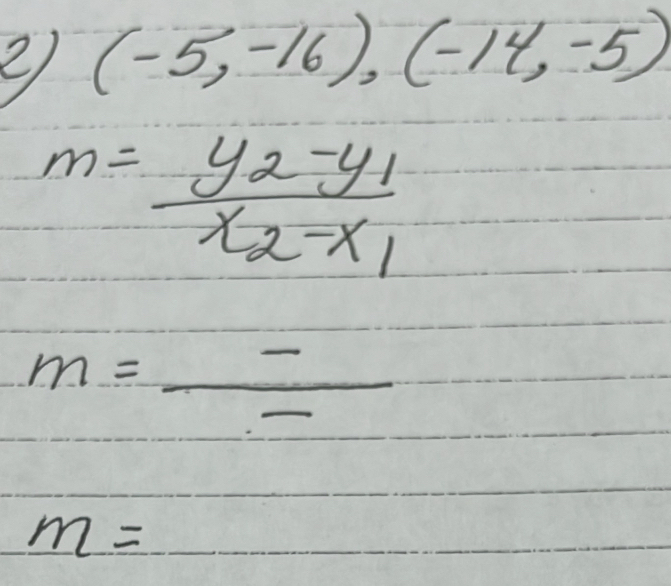 2) (-5, -16), (-14, -5)
m = y2-y1 / x2-x1
m = - / -
m =